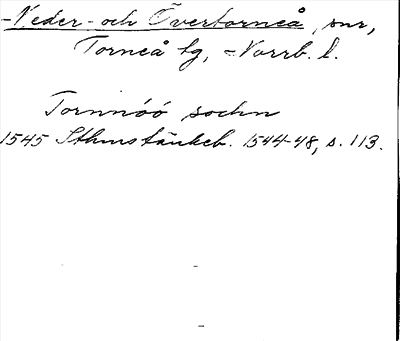 -Neder- och Övertorneå, snr,
Torneå tg, -Norrb. l.
Tornnöö sochn
1545 Sthms tänkeb. 1544-48, s. 113.